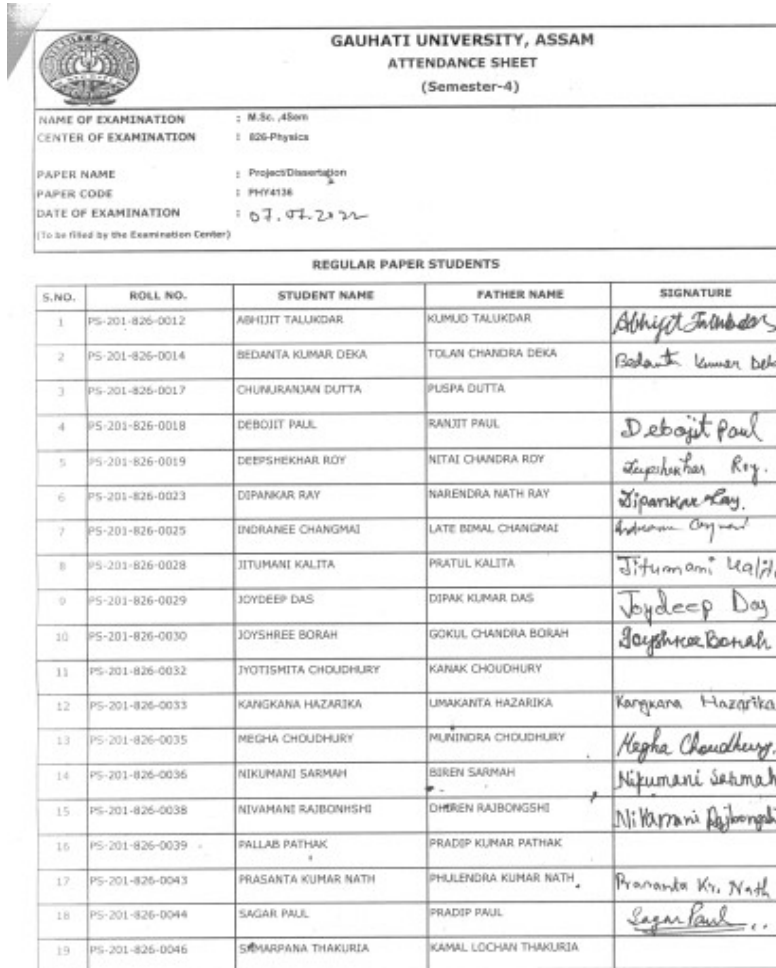 GAUHATI UNIVERSITY, ASSAM
ATTENDANCE SHEET
(Semester-4)
NAME OF EXAMINATION : M.Sc. ,4Sem
CENTER OF EXAMINATION : 826-Physics
PAPER NAME : Project/Dissertation
PAPER CODE : PHY4136
DATE OF EXAMINATION : 07.07.2022
(To be filled by the Examination Center)
REGULAR PAPER STUDENTS
S.NO. ROLL NO. STUDENT NAME FATHER NAME SIGNATURE
1 PS-201-826-0012 ABHIJIT TALUKDAR KUMUD TALUKDAR Abhijit Talukdar
2 PS-201-826-0014 BEDANTA KUMAR DEKA TOLAN CHANDRA DEKA Bedanta Kumar Deka
3 PS-201-826-0017 CHUNURANJAN DUTTA PUSPA DUTTA
4 PS-201-826-0018 DEBOJIT PAUL RANJIT PAUL Debojit Paul
5 PS-201-826-0019 DEEPSHEKHAR ROY NITAI CHANDRA ROY Roy.
6 PS-201-826-0023 DIPANKAR RAY NARENDRA NATH RAY Dipankar Ray.
7 PS-201-826-0025 INDRANEE CHANGMAI LATE BIMAL CHANGMAI
8 PS-201-826-0028 JITUMANI KALITA PRATUL KALITA Jitumani Kalita
9 PS-201-826-0029 JOYDEEP DAS DIPAK KUMAR DAS Joydeep Das
10 PS-201-826-0030 JOYSHREE BORAH GOKUL CHANDRA BORAH Joyshree Borah
11 PS-201-826-0032 JYOTISMITA CHOUDHURY KANAK CHOUDHURY
12 PS-201-826-0033 KANGKANA HAZARIKA UMAKANTA HAZARIKA Kangkana Hazarika
13 PS-201-826-0035 MEGHA CHOUDHURY MUNINDRA CHOUDHURY Megha Choudhury.
14 PS-201-826-0036 NIKUMANI SARMAH BIREN SARMAH Nikumani Sarmah
15 PS-201-826-0038 NIVAMANI RAJBONHSHI DHIREN RAJBONGSHI Nivamani Rajbongshi
16 PS-201-826-0039 PALLAB PATHAK PRADIP KUMAR PATHAK
17 PS-201-826-0043 PRASANTA KUMAR NATH PHULENDRA KUMAR NATH Prasanta Kr. Nath
18 PS-201-826-0044 SAGAR PAUL PRADIP PAUL Sagar Paul
19 PS-201-826-0046 SAMARPANA THAKURIA KAMAL LOCHAN THAKURIA